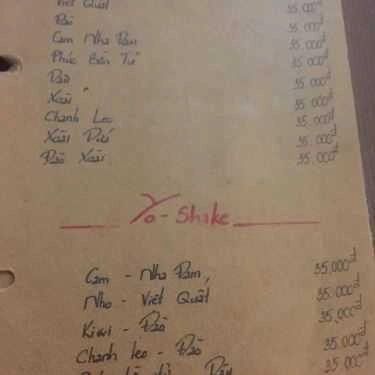 Việt Quất 35.000đ
Đào 35.000đ
Cam Nha Đam 35.000đ
Phúc Bồn Tử 35.000đ
Dâu 35.000đ
Xoài 35.000đ
Chanh Leo 35.000đ
Xoài Dứa 35.000đ
Đào Xoài 35.000đ
Yo - Shake
Cam - Nha Đam 35.000đ
Nho - Việt Quất 35.000đ
Kiwi - Đào 35.000đ
Chanh leo - Đào 35.000đ
35.000đ